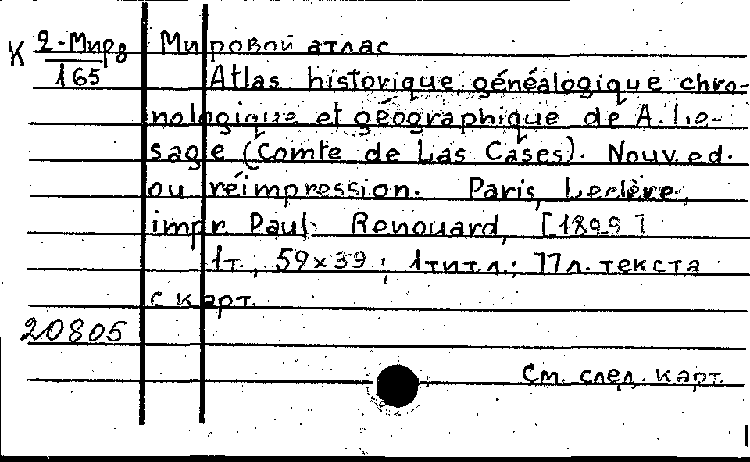 К 2-Миро Мировой атлас
165 Atlas historique, généalogique chro-
nologique et géographique de A. Le-
sage (Comte de Las Cases). Nouv. ed.
ou réimpression. Paris, Leclère,
impr Paul Renouard, [1899]
1т., 59×39; 1 тит.л.; 77л. текста
с карт.
20805
См. след. карт.